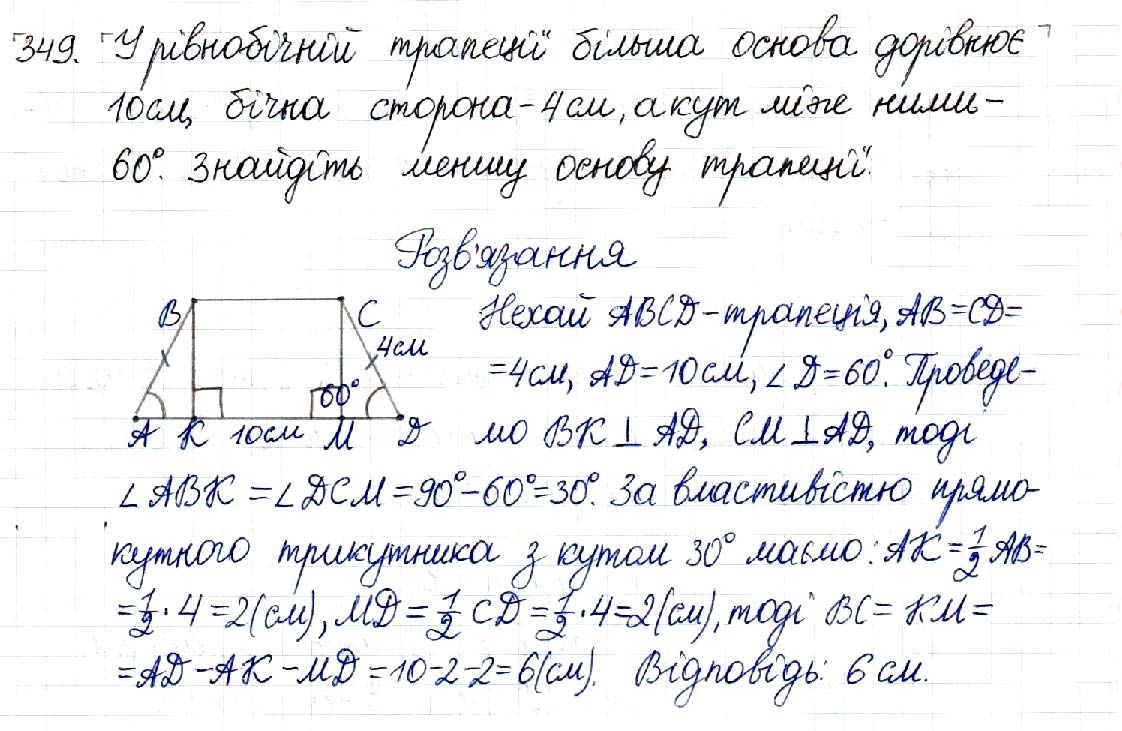 349. У рівнобічній трапеції більша основа дорівнює
10см, бічна сторона - 4см, а кут між ними -
60°. Знайдіть меншу основу трапеції.
Розв'язання
B C
4см
60°
A K 10см M D
Нехай ABCD - трапеція, AB = CD =
= 4см, AD = 10см, ∠D = 60°. Проведе-
мо BK ⊥ AD, CM ⊥ AD, тоді
∠ABK = ∠DCM = 90° - 60° = 30°. За властивістю прямо-
кутного трикутника з кутом 30° маємо: AK = 1/2 AB =
= 1/2 · 4 = 2(см), MD = 1/2 CD = 1/2 · 4 = 2(см), тоді BC = KM =
= AD - AK - MD = 10 - 2 - 2 = 6(см). Відповідь: 6 см.